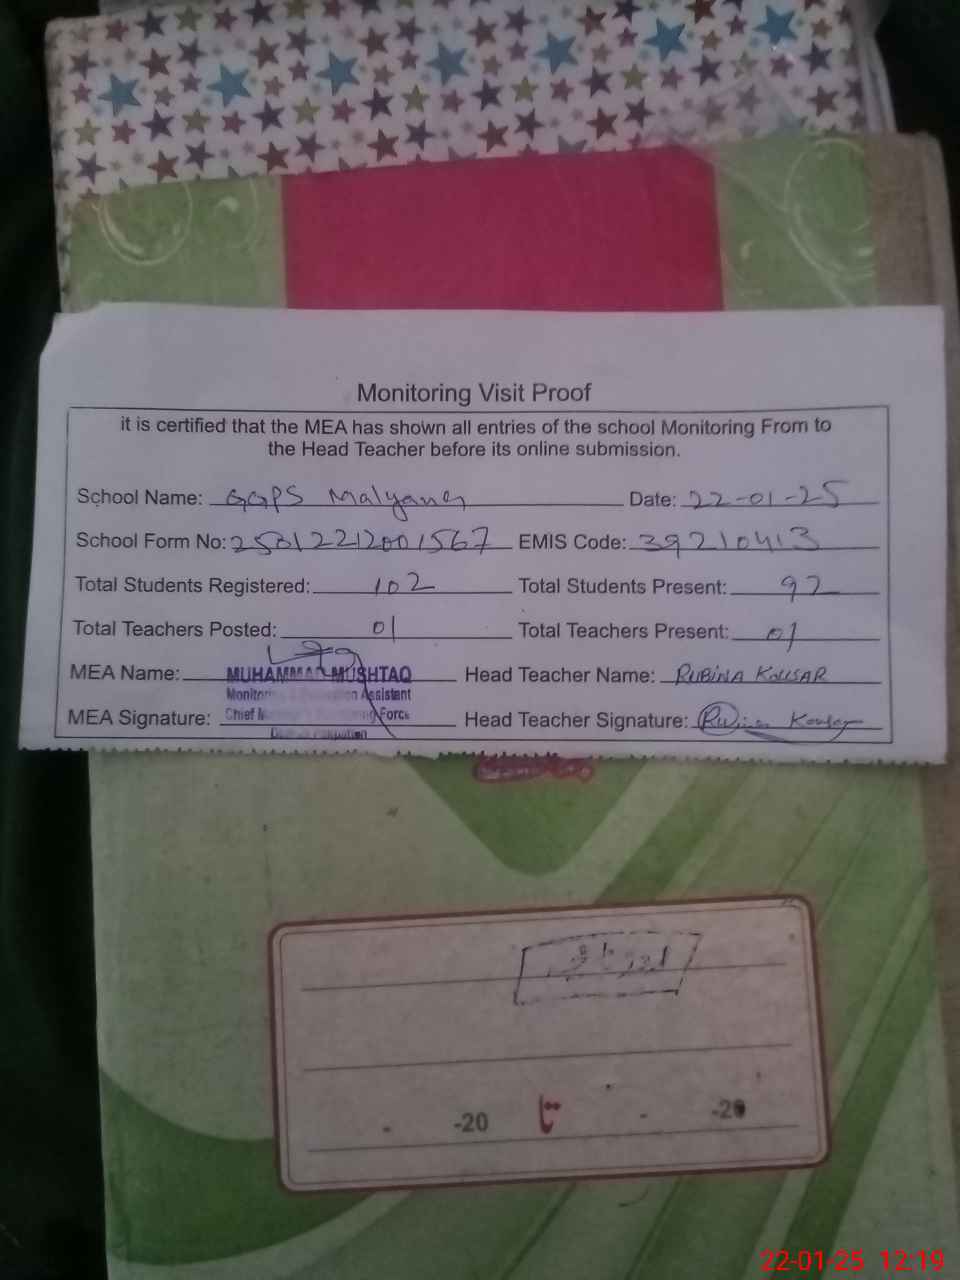 Monitoring Visit Proof
it is certified that the MEA has shown all entries of the school Monitoring From to
the Head Teacher before its online submission.
School Name: GGPS Date: 22-01-25
School Form No: EMIS Code: 39210413
Total Students Registered: 102 Total Students Present: 92
Total Teachers Posted: 01 Total Teachers Present: 01
MEA Name: MUHAMMAD MUSHTAQ Head Teacher Name: RUBINA KOUSAR
Assistant
MEA Signature: Chief Force Head Teacher Signature: Rubina Kousar
- -20 تا - -20
22-01-25 12:19